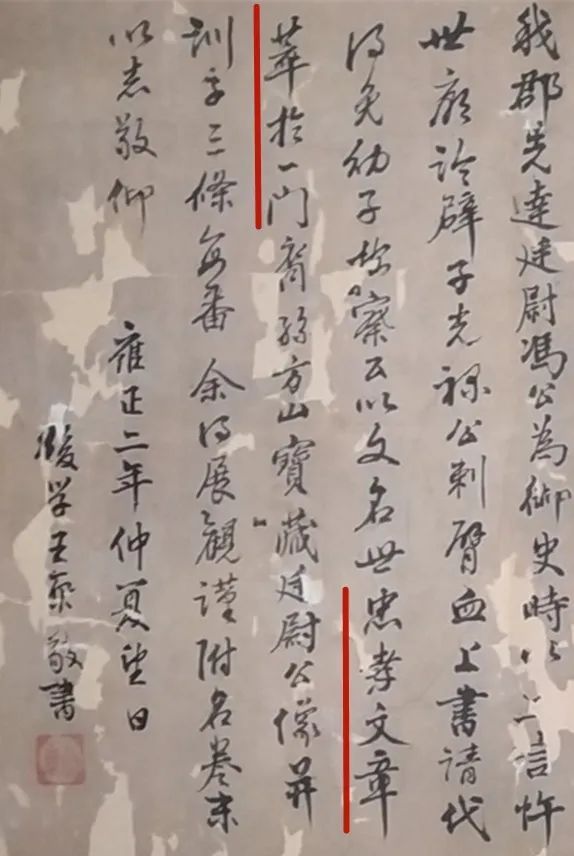 我郡先達廷尉馮公為御史時以上言忤
世廟論辟子光祿公刺臂血上書請代
得免幼子按察公以文名世忠孝文章
萃於一門裔孫方山寶藏廷尉公像并
訓子三條余得展觀謹附名卷末
以志敬仰
雍正二年仲夏望日
後学王敬書